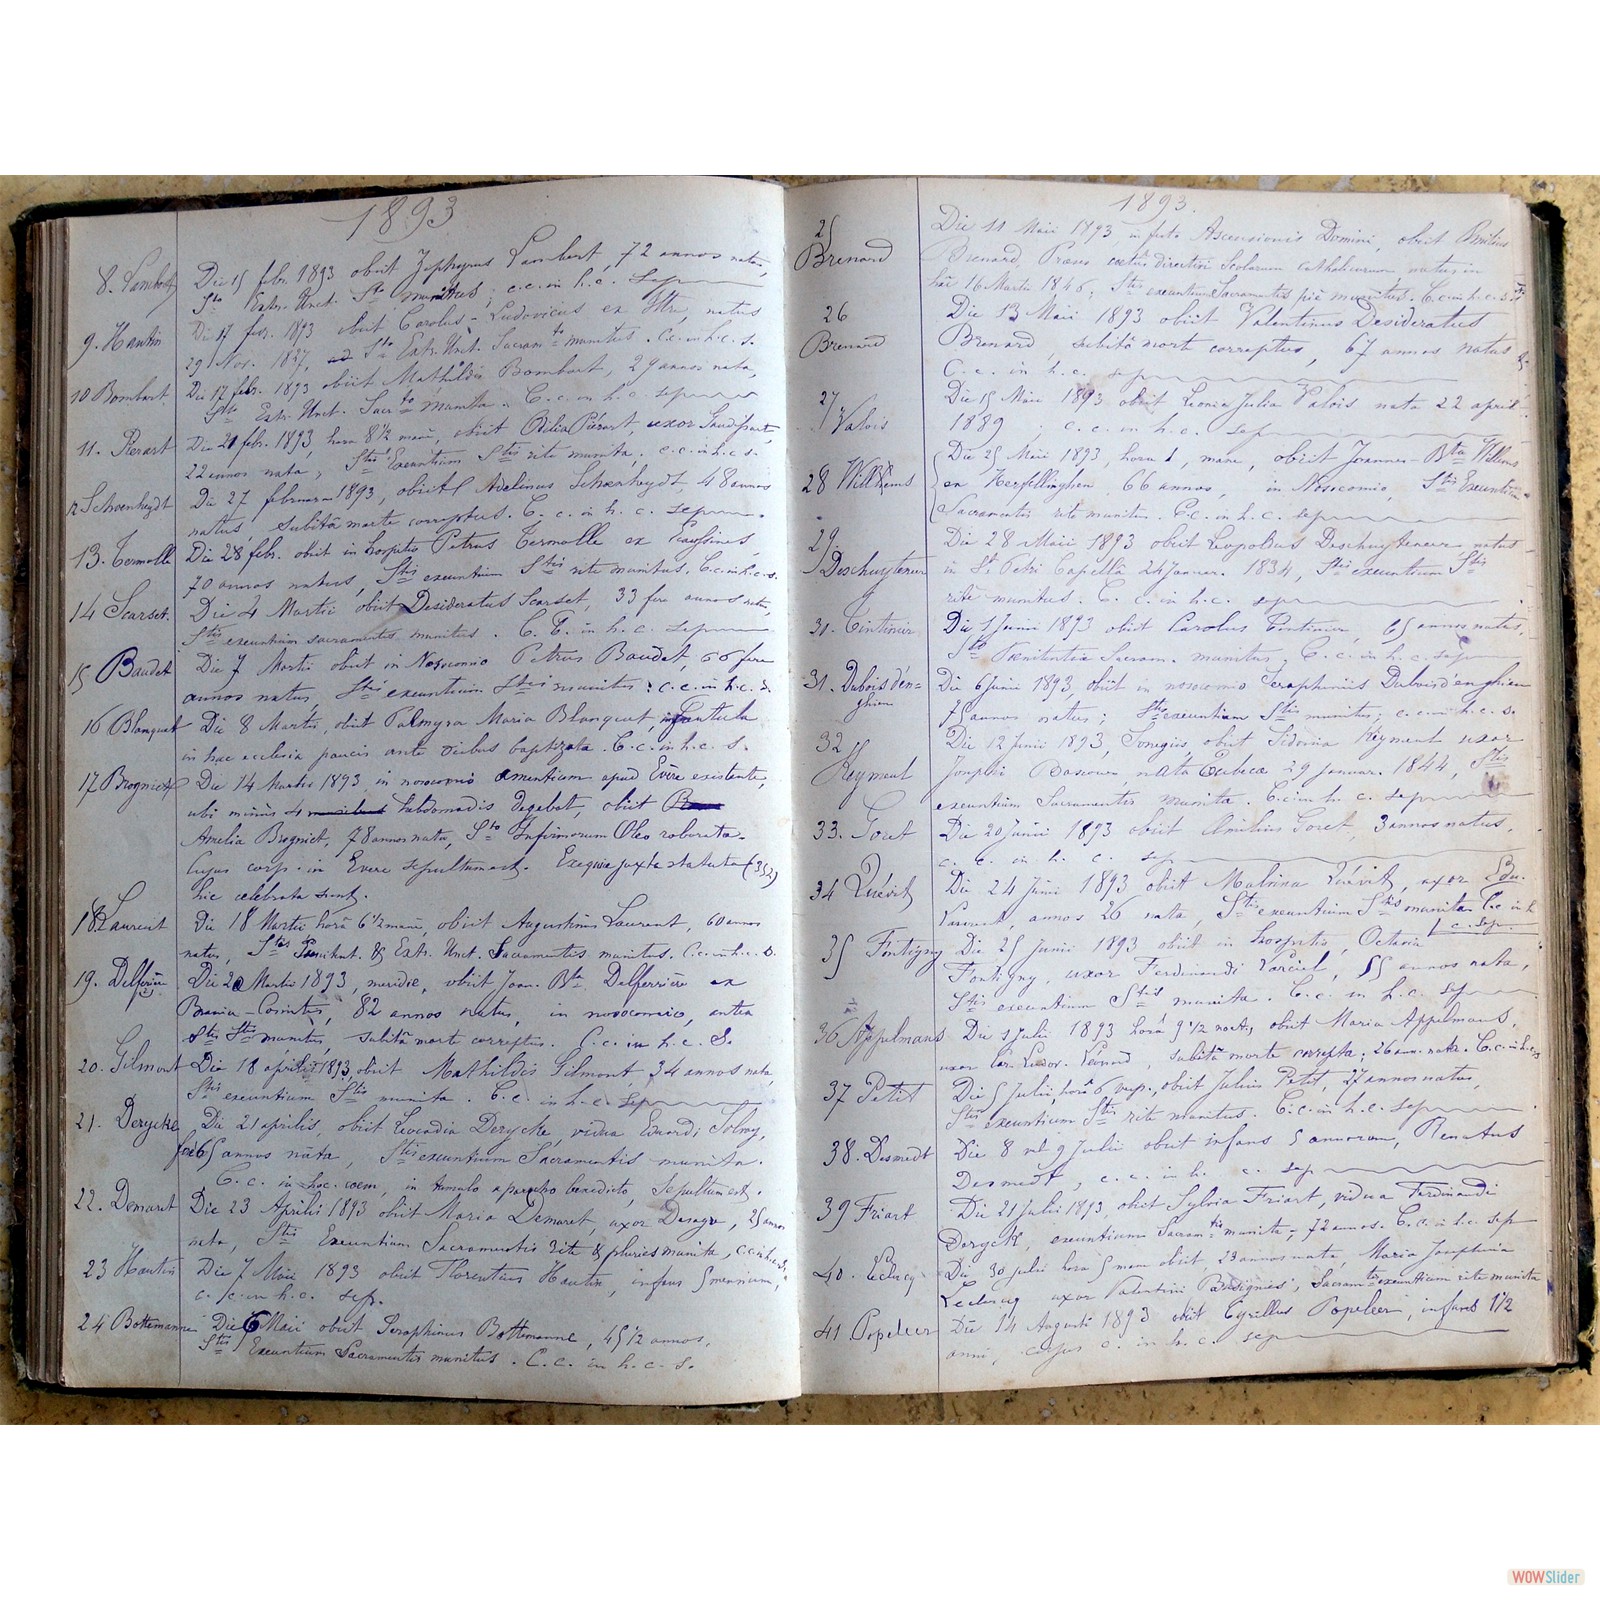 1893
8. Lambert
Die 15 febr. 1893 obiit Zephyrus Lambert, 72 annos natus,
Sto Extr. Unct. Sto munitus; c.c. in h.c. sep
9. Hautin
Die 17 febr. 1893 obiit Carolus-Ludovicus ex Ittre, natus
29 Nov. 1827, Sto Extr. Unct. Sacramto munitus. C.c. in h.c. s.
10 Bombart.
Die 17 febr. 1893 obiit Mathildis Bombart, 29 annos nata,
Sto Extr. Unct. Sacrto munita. C.c. in h.c. sep
11. Pierart
Die 21 febr. 1893, hora 8 1/2 mane, obiit Odilia Piérart, uxor
22 annos nata, Stis Exeuntium Stis rite munita. c.c. in h.c. s.
12 Schoenheydt
Die 27 februarii 1893, obiit Adelinus Schoenheydt, 48 annos
natus, subitâ morte correptus. C. c. in h. c. sep
13. Termolle
Die 28 febr. obiit in hospitio Petrus Termolle ex Ecaussines,
70 annos natus, Stis exeuntium Stis rite munitus. C.c. in h.c. s.
14 Scarset.
Die 4 Martii, obiit Desideratus Scarset, 33 fere annos natus,
Stis exeuntium sacramentis munitus. C. C. in h.c. sep
15 Baudet
Die 7 Martii obiit in Nosocomio Petrus Baudet, 66 fere
annos natus, Stis exeuntium Stis munitus: c.c. in h.c. s.
16 Blanquet
Die 8 Martii, obiit Palmyra Maria Blanquet, infantula
in hac ecclesia paucis ante diebus baptizata. C.c. in h.c. s.
17 Brogniet
Die 14 Martii 1893 in nosocomio amentium apud Evere existente,
ubi minus 4 hebdomadis degebat, obiit
Amelia Brogniet, 78 annos nata, Sto Infirmorum Oleo roborata.
Cujus corp. in Evere sepultum est. Exequiae juxta statuta (352)
hic celebrata sunt.
18. Laurent
Die 18 Martii horâ 6 1/2 mane, obiit Augustinus Laurent, 60 annos
natus, Stis Poenitent. & Extr. Unct. Sacramentis munitus. C.c. in h.c. s.
19. Delferrière
Die 20 Martii 1893, meridie, obiit Joan. Bta Delferrière ex
Brania-Comitis, 82 annos natus, in nosocomio, antea
Stis munitus, subitâ morte correptus. C.c. in h.c. S.
20. Gilmont
Die 18 aprilis 1893, obiit Mathildis Gilmont, 34 annos nata,
Stis exeuntium Stis munita. C.c. in h.c. sep
21. Derycke
Die 21 aprilis, obiit Leocadia Derycke vidua Eduardi Solmy,
fere 65 annos nata, Stis exeuntium Sacramentis munita.
C.c. in hoc coem, in tumulo a parocho benedicto, sepultum est.
22. Demaret
Die 23 Aprilis 1893 obiit Maria Demaret, uxor Desagre, 25 annos
nata, Stis Exeuntium Sacramentis rite & pluries munita, c.c. in h.c. s.
23 Hautin
Die 7 Maii 1893 obiit Florentius Hautin, infans 5 mensium,
c. c. in h.c. sep.
24 Bottemanne
Die 6 Maii obiit Seraphinus Bottemanne, 45 1/2 annos,
Stis Exeuntium Sacramentis munitus. C.c. in h.c. S.
1893.
25
Brenard
Die 11 Maii 1893, in festo Ascensionis Domini, obiit Emilius
Brenard, Praeses coetûs directivi Scolarum catholicarum, natus in
hîc 16 Martii 1846; Stis exeuntium Sacramentis piè munitus. C.c. in h.c. s.
26
Brenard
Die 13 Maii 1893 obiit Valentinus Desideratus
Brenard, subitâ morte correptus, 67 annos natus
C.c. in h.c. sep
27
Valois
Die 15 Maii 1893 obiit Leonia Julia Valois nata 22 april.
1889, c.c. in h.c. sep
28 Willems
Die 25 Maii 1893, hora 1, mane, obiit Joannes-Bta Willems
ex Herffelinghen, 66 annos, in Nosocomio, Stis Exeuntium
Sacramentis rite munitus. C.c. in h.c. sep
29.
Deschuyteneer
Die 28 Maii 1893 obiit Leopoldus Deschuyteneer natus
in St Petri Capellâ 24 Januar. 1834, Stis exeuntium Stis
rite munitus. C. c. in h.c. sep
30. Tintinier
Die 1 Junii 1893 obiit Carolus Tintinier, 65 annos natus,
Sto Poenitentiae Sacram. munitus, C.c. in h.c. sep
31. Dubois d'en=
ghien
Die 6 Junii 1893, obiit in nosocomio Seraphinus Dubois d'enghien
75 annos natus; Stis exeuntium Stis munitus, c.c. in h.c. s.
32
Heyment
Die 12 Junii 1893, Sonegiis, obiit Sidonia Heyment uxor
Josephi nata Tubicae 29 Januar. 1844, Stis
exeuntium Sacramentis munita. C.c. in h. c. sep
33. Goret
Die 20 Junii 1893 obiit Amilius Goret, 3 annos natus,
c. c. in h. c. sep
34 Quévit
Die 24 Junii 1893 obiit Malvina Quévit, uxor Edu.
annos 26 nata Stis exeuntium Stis munita. C.c. in h.
c. sep.
35 Fontigny
Die 25 Junii 1893 obiit in hospitio, Octavia
Fontigny, uxor Ferdinandi Parciel, 55 annos nata,
Stis exeuntium Stis munita. C.c. in h.c. sep
36 Appelmans
Die 1 Julii 1893 horâ 9 1/2 noctis, obiit Maria Appelmans,
uxor Car. Ludov. Léonard, subitâ morte correpta; 26 ann. nata. C.c. in h.c. s.
37 Petit
Die 5 Julii horâ 6 vesp., obiit Julius Petit, 27 annos natus,
Stis exeuntium Stis rite munitus. C.c. in h.c. sep
38. Desmedt
Die 8 vel 9 Julii obiit infans 5 annorum, Renatus
Desmedt, c.c. in h. c. sep
39 Friart
Die 21 Julii 1893, obiit Sylvia Friart, vidua Ferdinandi
Deryck, exeuntium Sacramtis munita, 72 annos. C.c. in h.c. sep
40. Leclercq
Die 30 julii hora 5 mane obiit, 23 annos nata, Maria Josephina
Leclercq uxor Valentini Sacramtis exeuntium rite munita
41. Popeleer
Die 14 Augusti 1893 obiit Cyrillus Popeleer, infans 1 1/2
anni, corpus c. in h.c. sep
WOWSlider